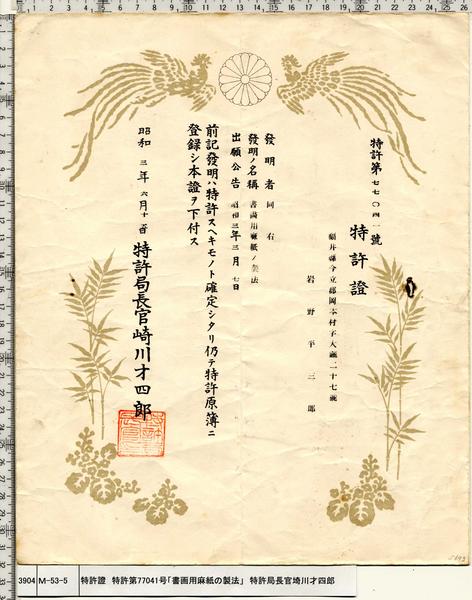 特許第七七〇四一號
特許證
福井縣今立郡岡本村字大瀧二十七號
岩野平三郎
發明者 同右
發明ノ名稱 書画用麻紙ノ製法
出願公告 昭和三年三月七日
前記發明ハ特許スヘキモノト確定シタリ仍テ特許原簿ニ
登録シ本證ヲ下付ス
昭和三年六月十
特許局長官崎川才四郎
3904 M-53-5 特許證 特許第77041号「書画用麻紙の製法」 特許局長官埼川才四郎